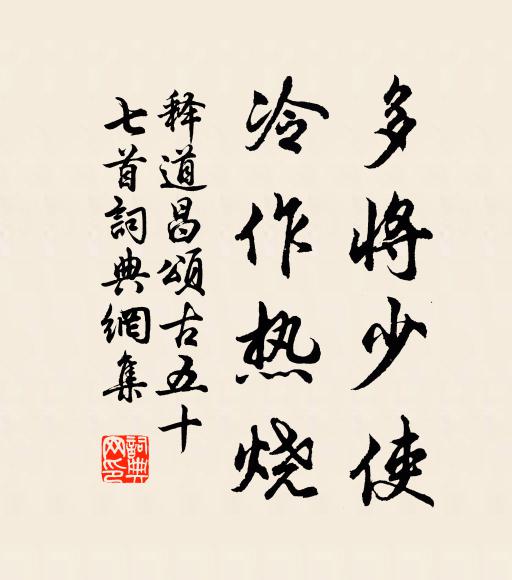 多将少使
冷作热烧
释道昌颂古五十
七首詞典網集
詞典网印